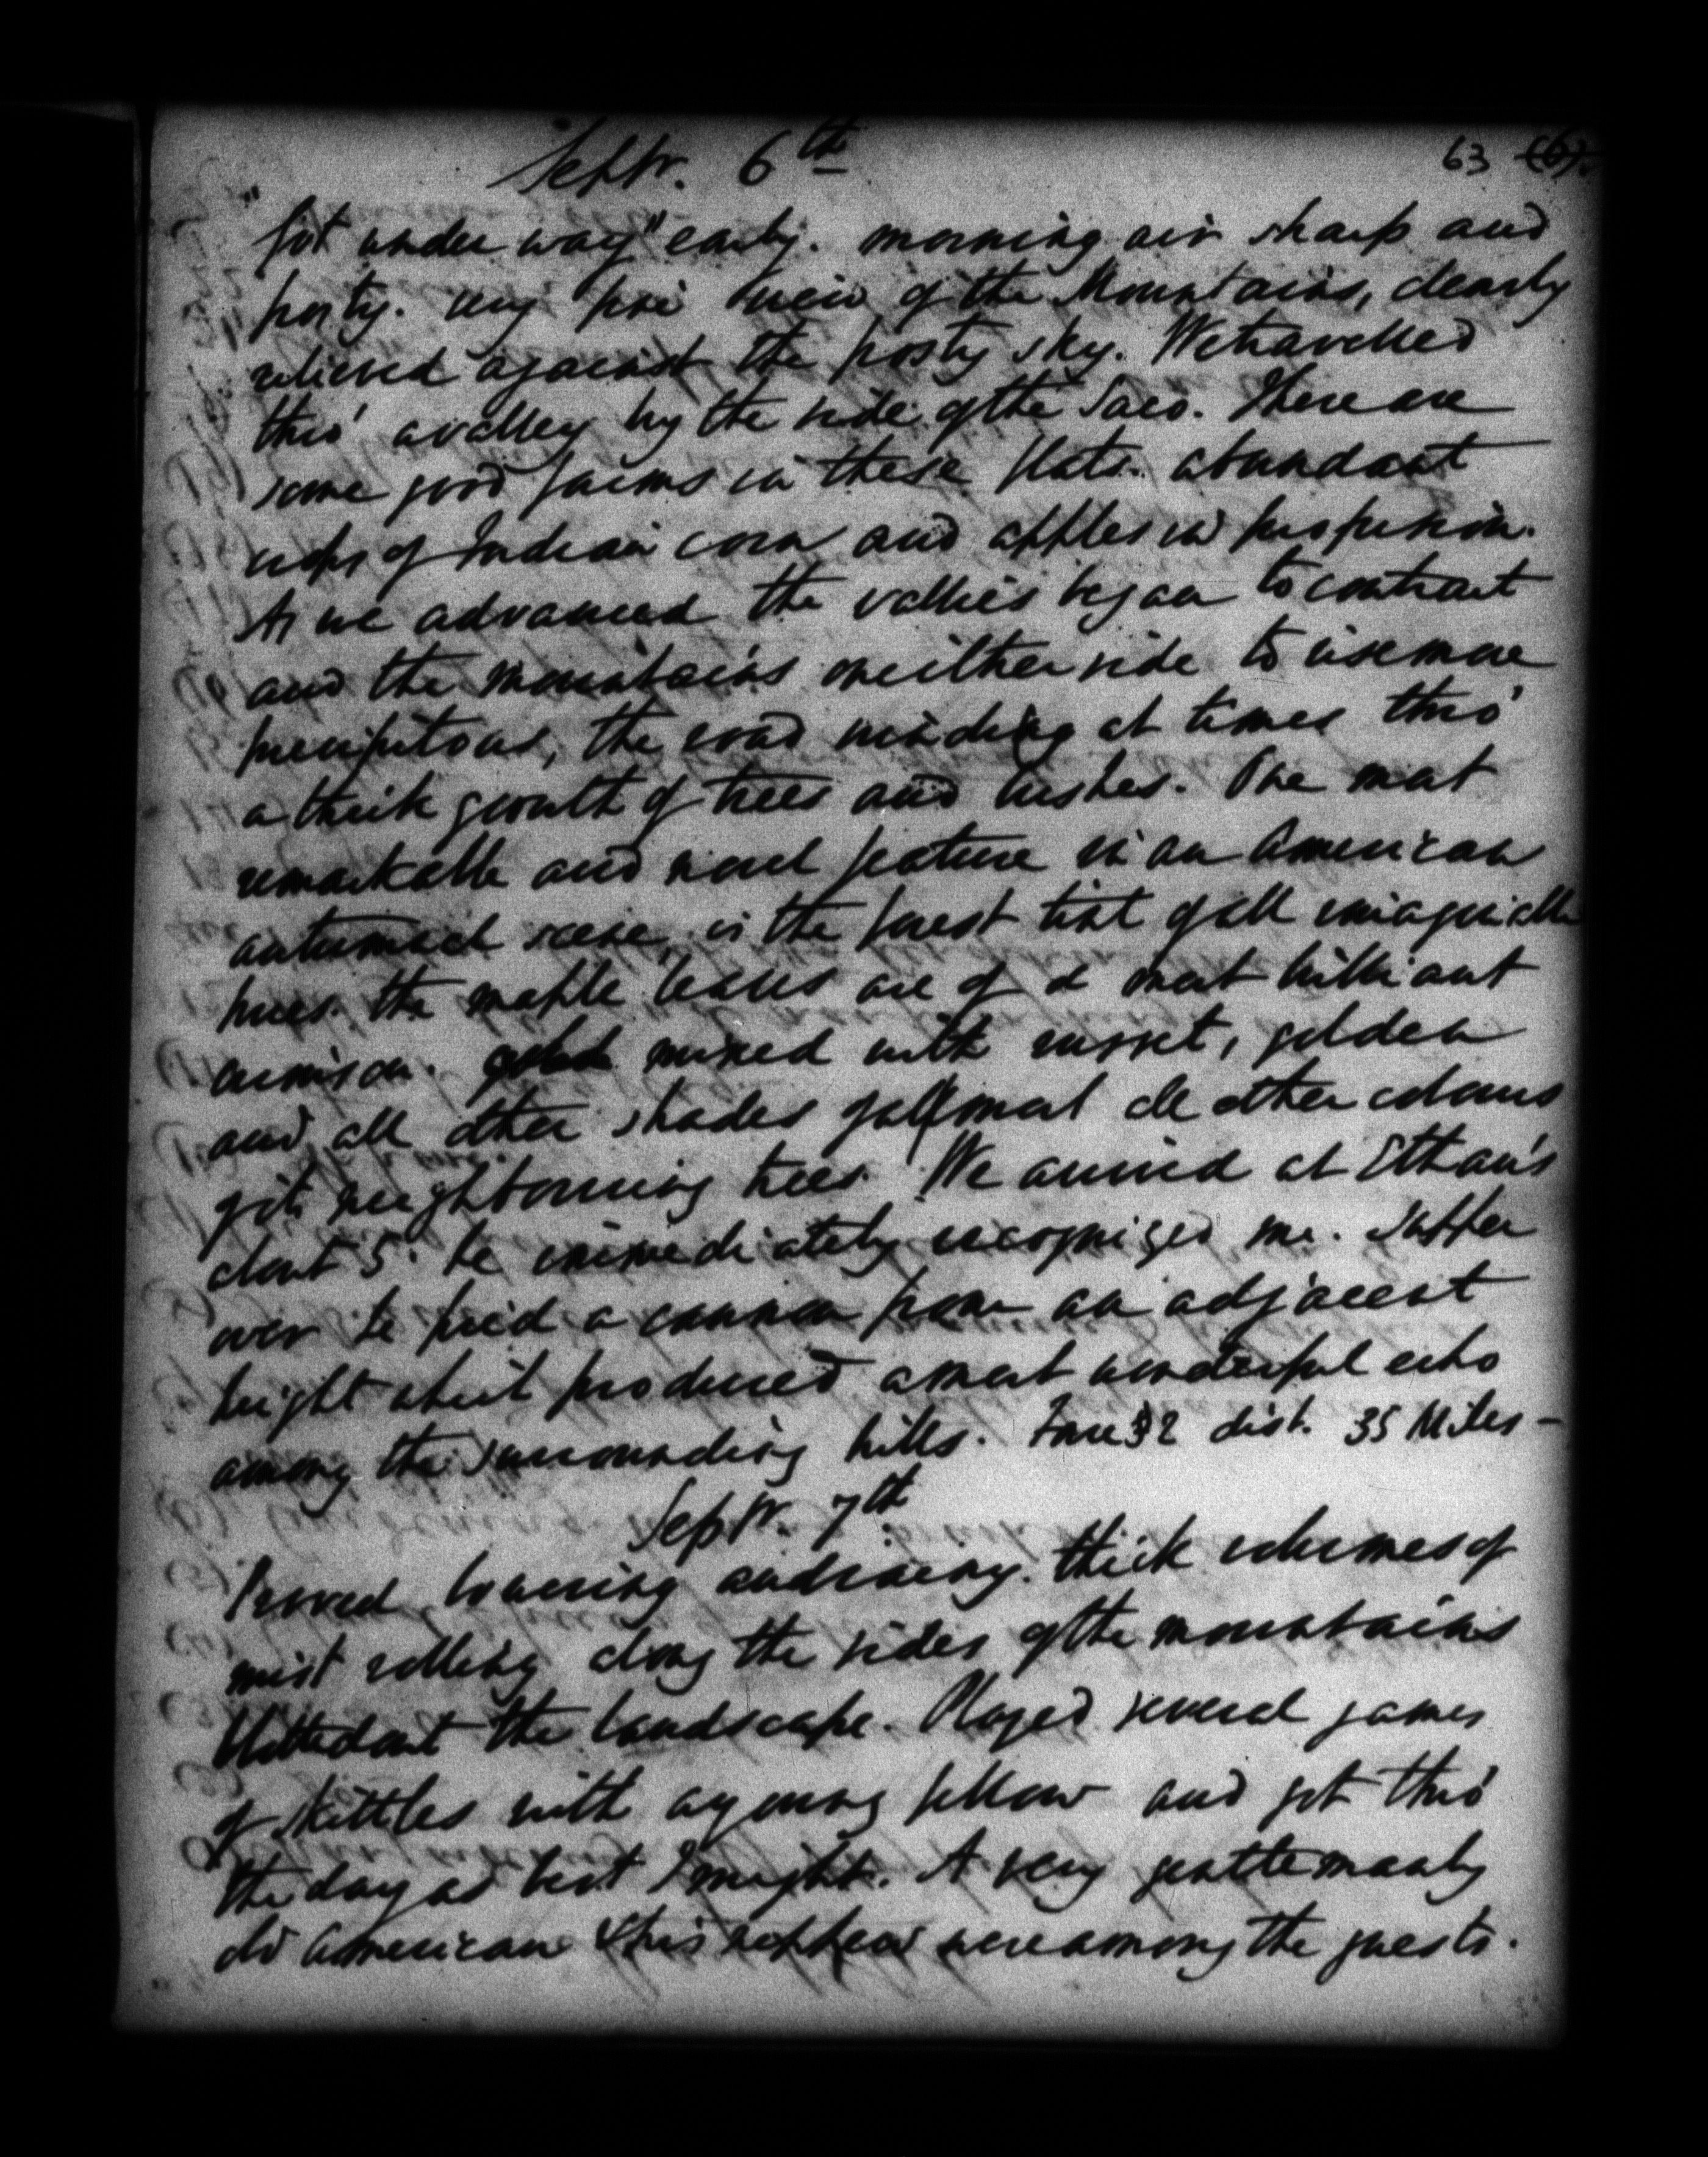 Septr. 6th
63 (6).
"Got under way" early. morning air sharp and
frosty. very fine view of the Mountains, clearly
relieved against the frosty sky. We travelled
thro' a valley by the side of the Saco. There are
some good farms in these flats. abundant
crops of Indian corn and apples in profusion.
As we advanced the vallies began to contract
and the mountains on either side to rise more
precipitous, the road winding at times thro'
a thick growth of trees and bushes. One most
remarkable and novel feature in an American
autumnal scene, is the forest tint of all imaginable
hues. the maple leaves are of a most brilliant
crimson. mixed with russet, golden
and all other shades of almost all other colours
of its neighbouring trees. We arrived at Ethan's
about 5. he immediately recognized me. Supper
over he fired a cannon from an adjacent
height which produced a most wonderful echo
among the surrounding hills. Fare $2 dist. 35 Miles -
Septr. 7th
Proved lowering and rainy. thick volumes of
mist rolling along the sides of the mountains
blotted out the landscape. Played several games
of skittles with a young fellow and got thro'
the day as best I might. A very gentlemanly
old American & his nephew were among the guests.